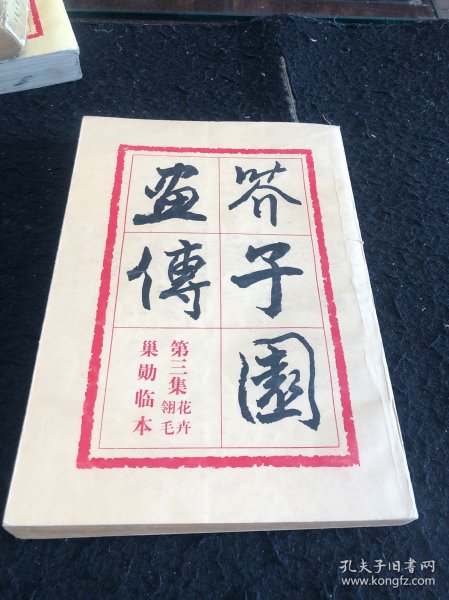 芥子園
畫傳
第三集 花卉
翎毛
巢勋临本
孔夫子旧书网
www.kongfz.com